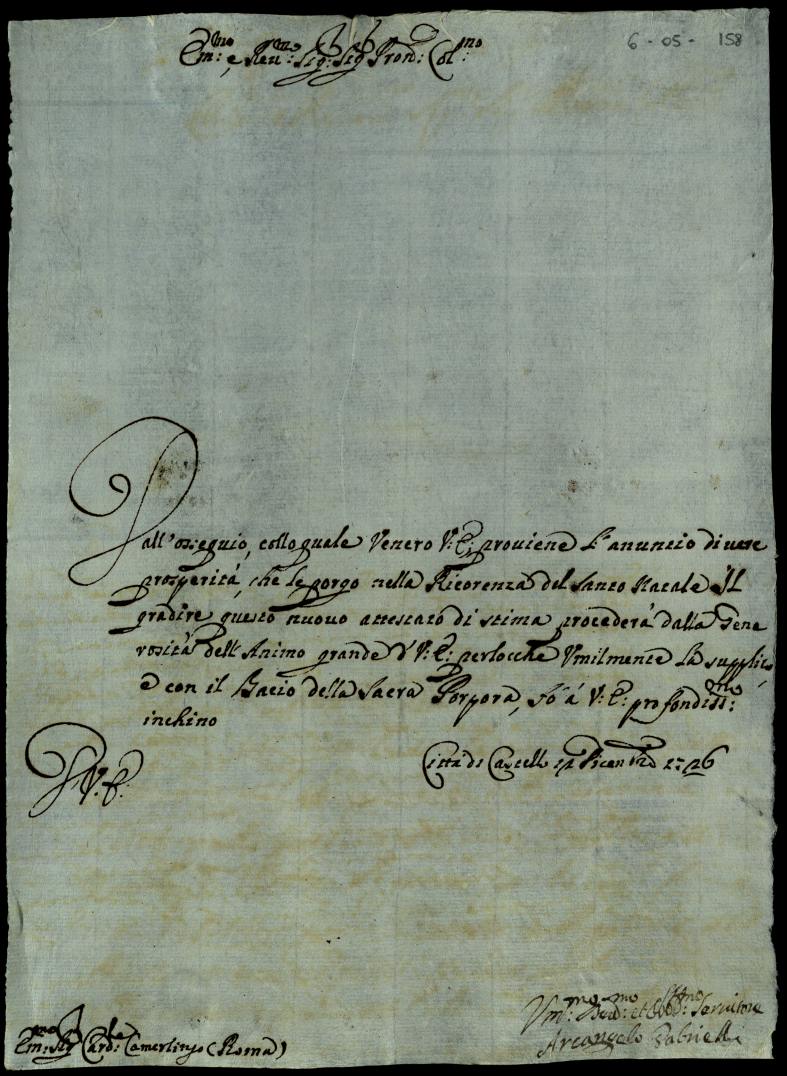 6 - 05 - 158
Em:mo e Reu:mo Sig: Sig Pron: Col:mo
Dall'osseguio, collo quale Venero V: E: prouiene l'anuncio di vere
prosperità, che le porgo nella Ricorenza del Santo Natale Il
gradire questo nuovo attestato di stima procederà dalla Gene
rosità dell'Animo grande d'V: E: perlocche Vmilmente la supplico,
e con il Bacio della Sacra Porpora, fò à V: E: profondiss:mo
inchino
Città di Castello
D V: E:
Vm:mo Deu:mo et Obb:mo Seruitore
Arcangelo Gabrielli
Em:mo Sig Card:le Camerlingo (Roma)